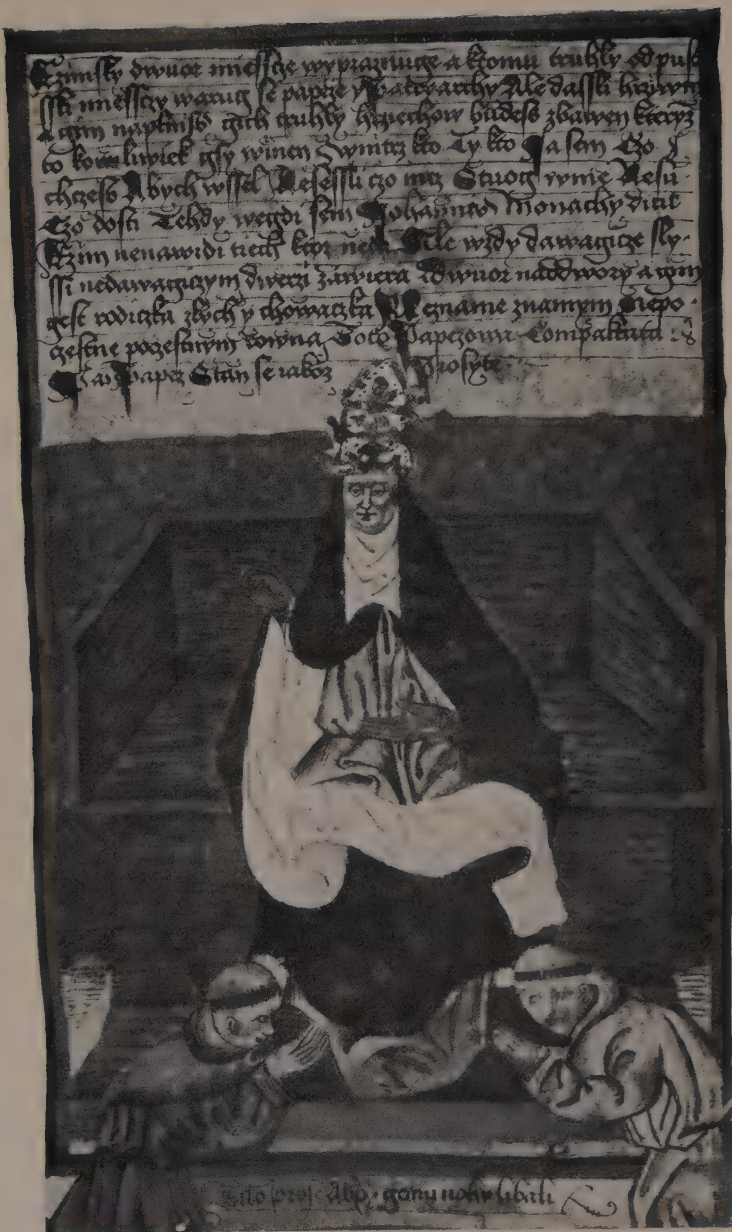 Rzimsky dwuor miessce wyprazniuge a ktomu truhly od pus
sti miessczy warug se papeze y Patryarchy Ale dassli hrziwny
A gim naplniss gich truhly hrziechow budess zbawen kteryz
to kowliwiek gsy winen Zwnitrz kto Ty kto Ja sem Czo
chczess Abych wssel Nesessli czo nicz Stuog wynie Nesu
Czo dosti Tehdy wegdi sem Johannes Monachy dicit
Rzim nenawidi tiech Ale wzdy dawagicze sly
ssi nedawagiczym dwerzi zawiera dwuor nad dwory a rzim
gest rodiczka zlych y chowaczka Neznamie znamym Nepo
czestne poczestnym rowna Toto Papezowa Compaktata
Pan Papez Stan se raboz Prosyte
Abp gemu nohy libali